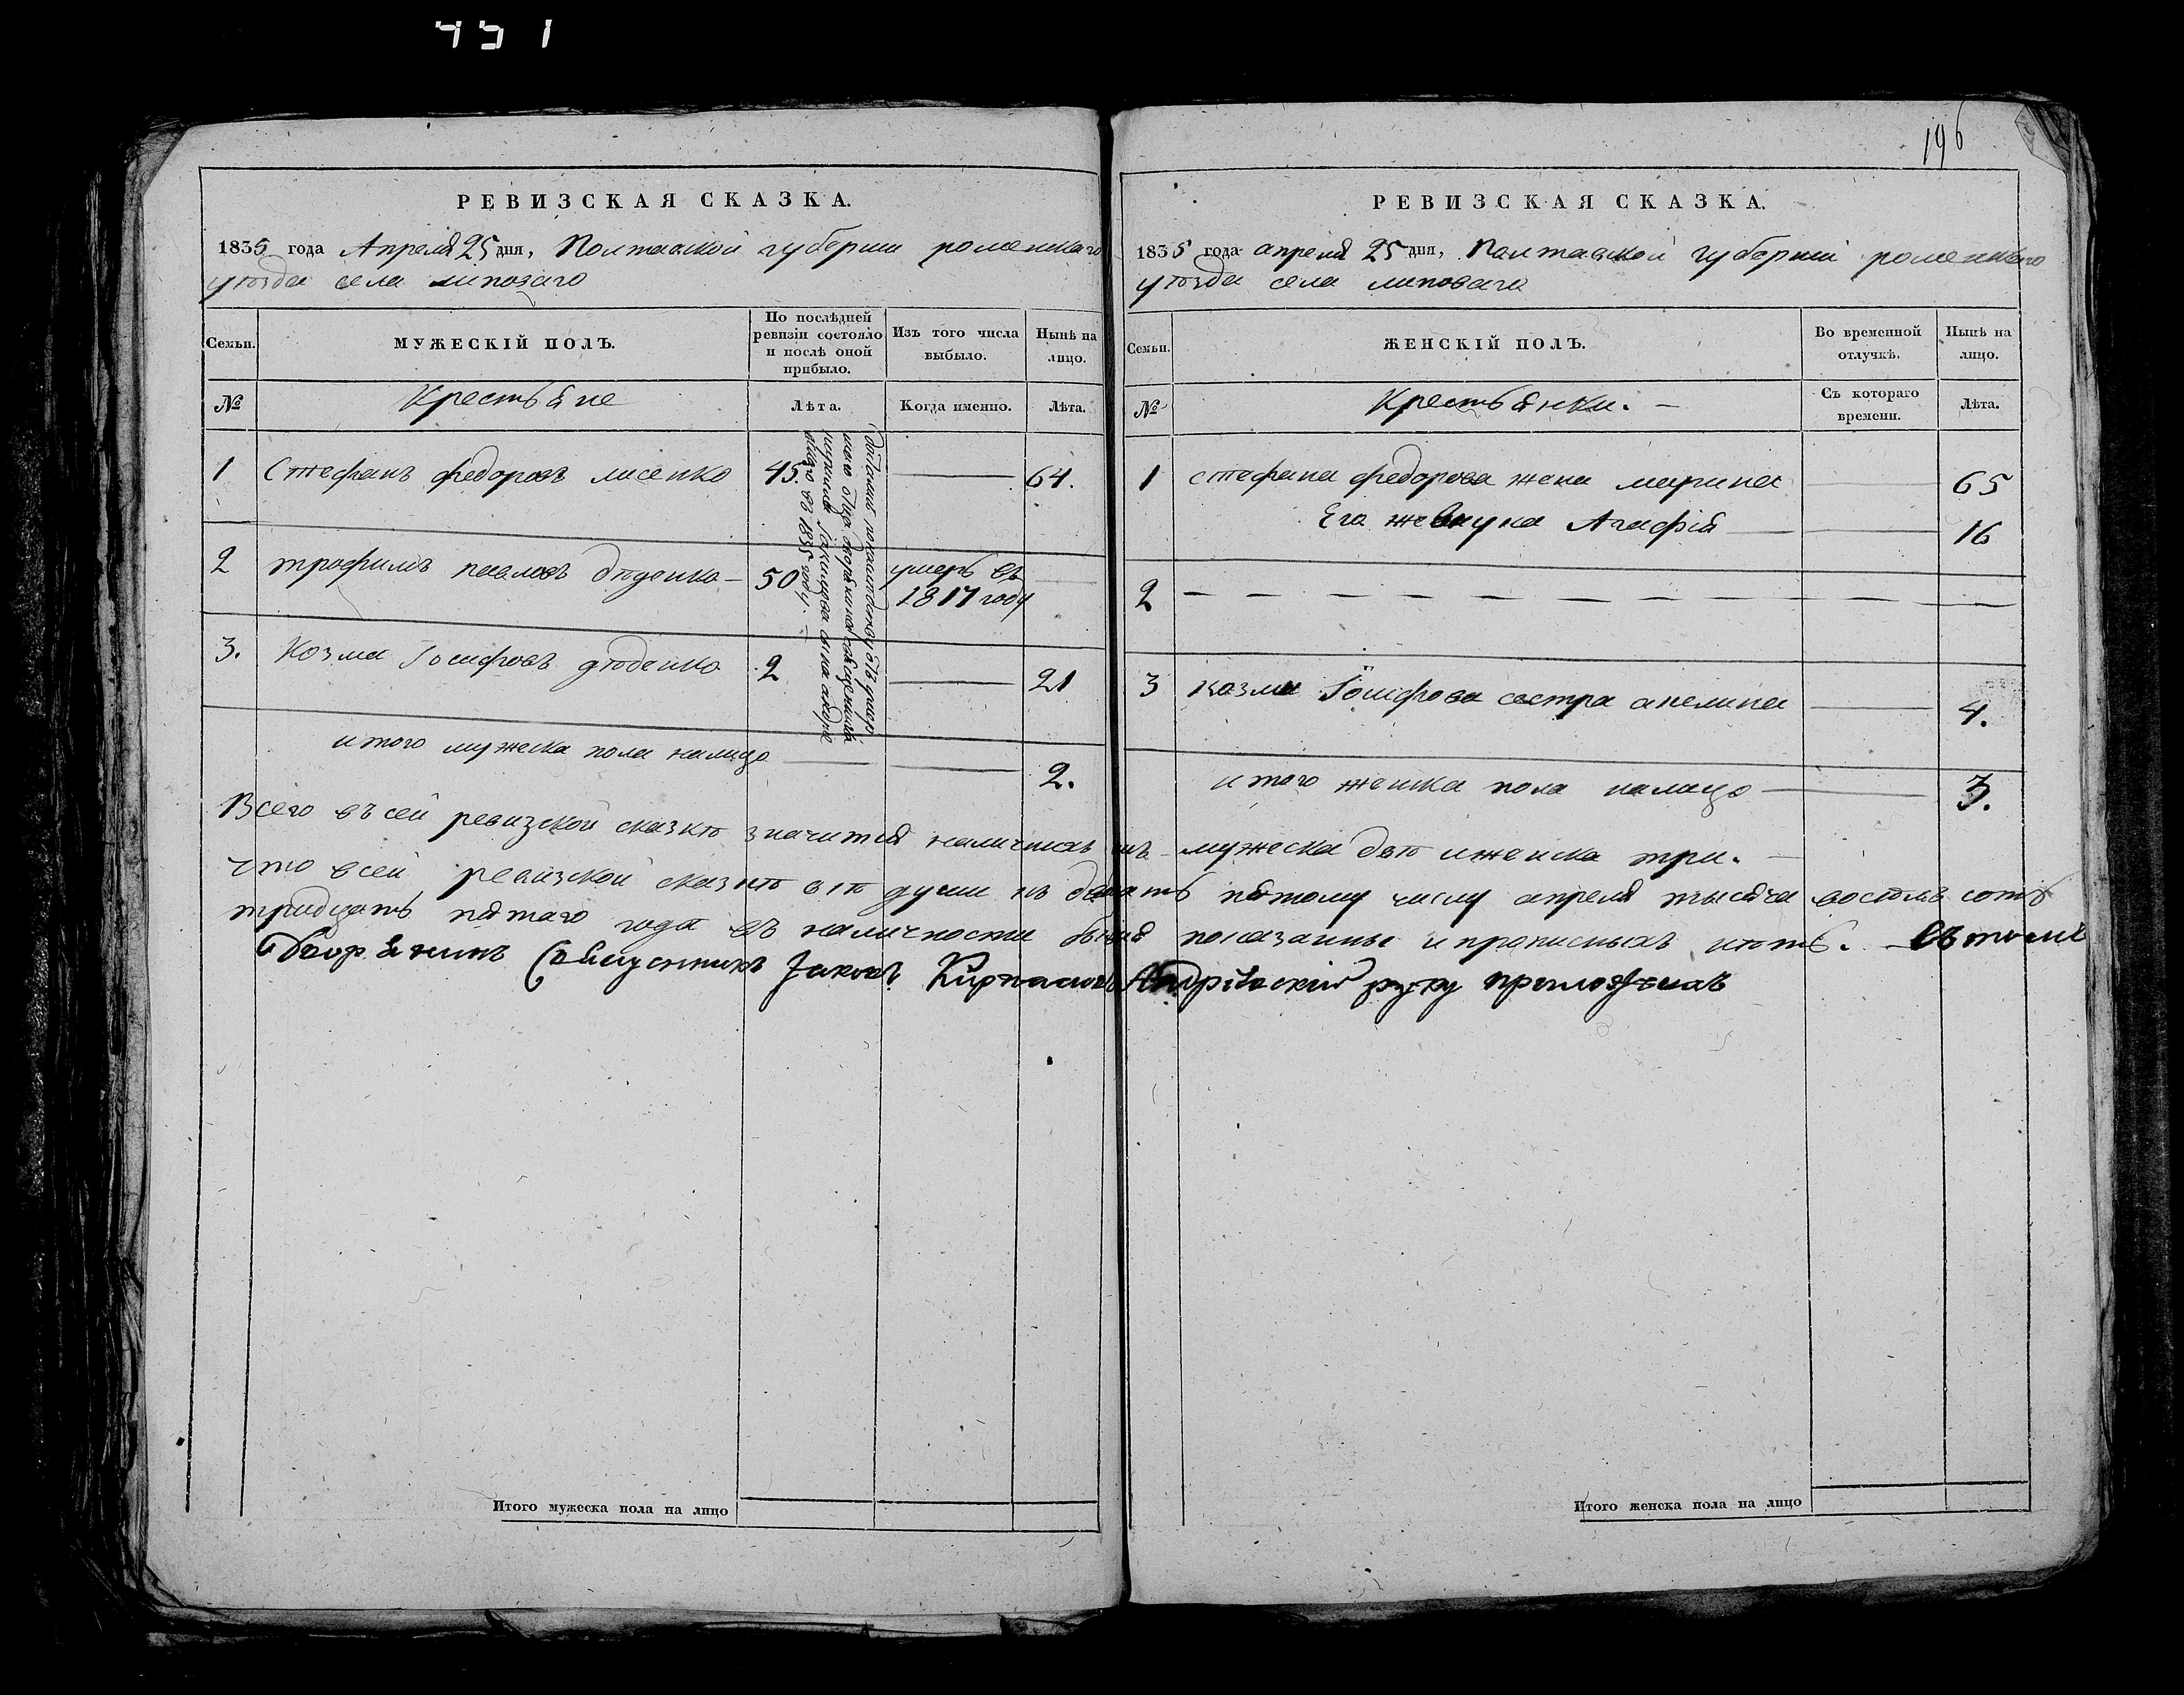 451
РЕВИЗСКАЯ СКАЗКА.
1835 года Апреля 25 дня, Полтавской губернии роменскаго
уезда села липоваго
Семьи.
МУЖЕСКІЙ ПОЛЪ.
По послѣдней ревизіи состояло и послѣ оной прибыло.
Изъ того числа выбыло.
Нынѣ на лицо.
№
Крестьяне
Лѣта.
Когда именно.
Лѣта.
1 Стефанъ федоровъ лисенко 45. 64.
2 трофимъ павловъ дѣденко 50 умеръ въ 1817 году
3. Козма Іосифовъ дѣденко 2 21
въ 1835 году.
итого мужеска пола налицо 2.
196
РЕВИЗСКАЯ СКАЗКА.
1835 года апреля 25 дня, Полтавской губерніи роменскаго
уѣзда села липоваго
Семьи.
ЖЕНСКІЙ ПОЛЪ.
Во временной отлучкѣ.
Нынѣ на лицо.
№
Крестьянки.
Съ котораго времени.
Лѣта.
1 стефана федорова жена марина 65
Его же внука Агафія 16
2
3 козмы Іосифова сестра 4.
итого женска пола налицо 3.
Всего въ сей ревизской сказкѣ значится наличныхъ мужеска двѣ и женска три.
что в сей ревизской сказкѣ всѣ души къ двадцать пятому числу апреля тысяча восемь сотъ
тридцать пятаго года въ наличности бывшія показаны и прописныхъ нѣтъ. Въ томъ
дворянинъ Священникъ Іаковъ Андріевскій руку приложилъ
Итого мужеска пола на лицо
Итого женска пола на лицо